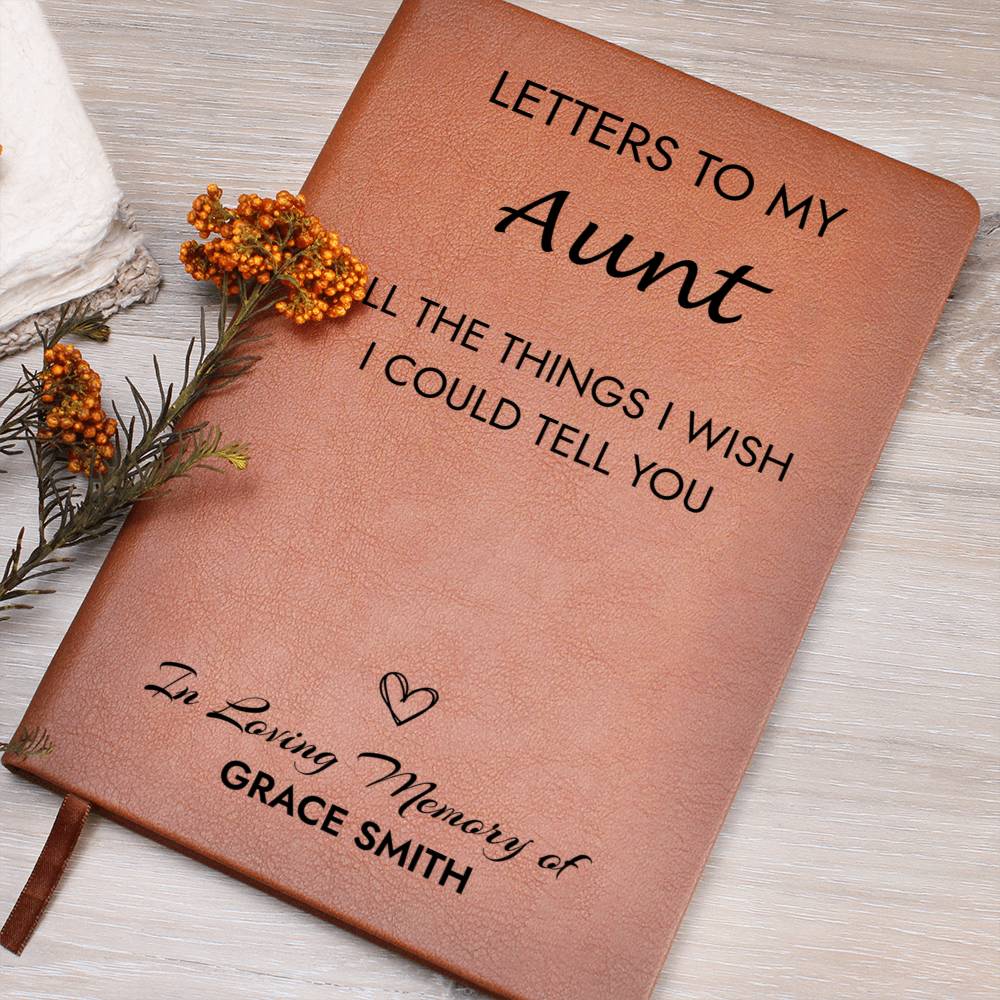 LETTERS TO MY
Aunt
LL THE THINGS I WISH
I COULD TELL YOU
In Loving Memory of
GRACE SMITH